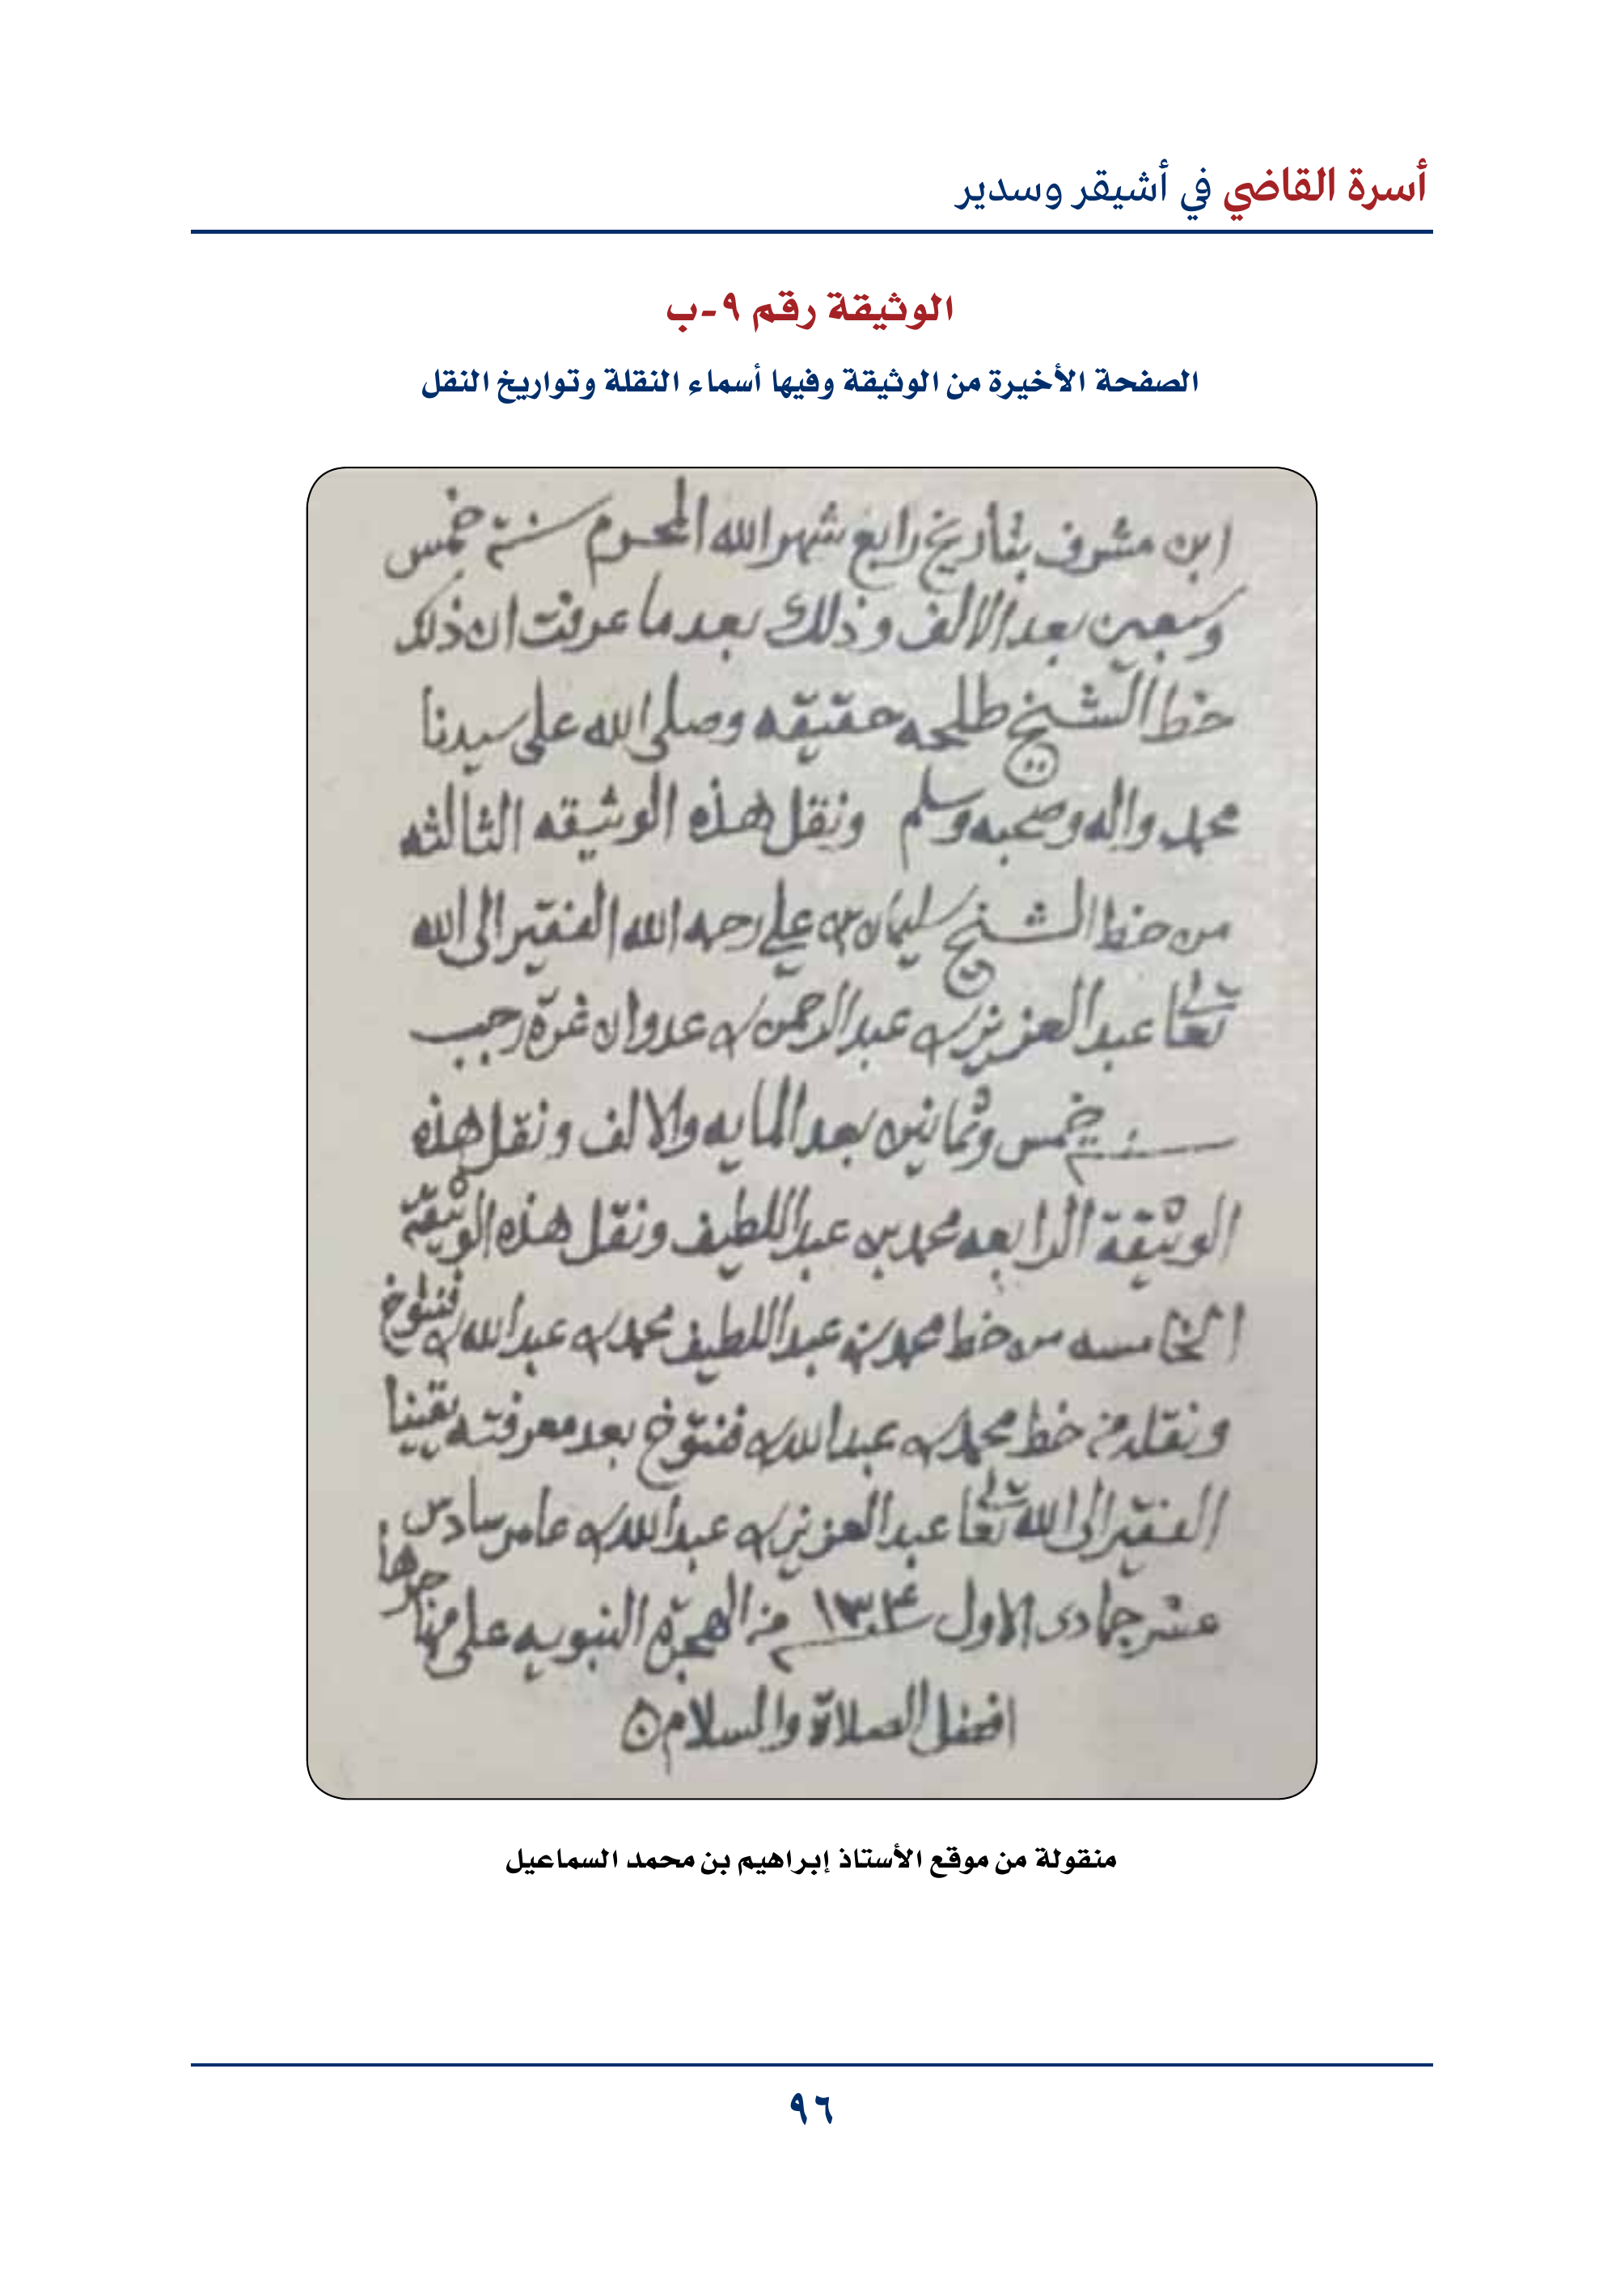 أسرة القاضي في أشيقر وسدير
الوثيقة رقم ٩-ب
الصفحة الأخيرة من الوثيقة وفيها أسماء النقلة وتواريخ النقل
ابن مشرف بتأريخ رابع شهر الله المحرم سنة خمس
وسبعين بعد الالف وذلك بعد ما عرفت ان ذلك
خط الشيخ طلحه حقيقه وصلى الله على سيدنا
محمد واله وصحبه وسلم ونقل هذه الوثيقه الثالثه
من خط الشيخ سليمان بن علي رحمه الله الفقير الى الله
تعالى عبد العزيز بن عبد الرحمن بن عدوان غرة رجب
سنة خمس وثمانين بعد المايه والالف ونقل هذه
الوثيقة الرابعه محمد بن عبد اللطيف ونقل هذه الوثيقة
الخامسه من خط محمد بن عبد اللطيف محمد بن عبد الله بن فنتوخ
ونقله من خط محمد بن عبد الله بن فنتوخ بعد معرفته يقينا
الفقير الى الله تعالى عبد العزيز بن عبد الله بن عامر سادس
عشر جمادى الاول سنة ١٣٣٤ من الهجرة النبويه على مهاجرها
افضل الصلاة والسلام
منقولة من موقع الأستاذ إبراهيم بن محمد السماعيل
٩٦